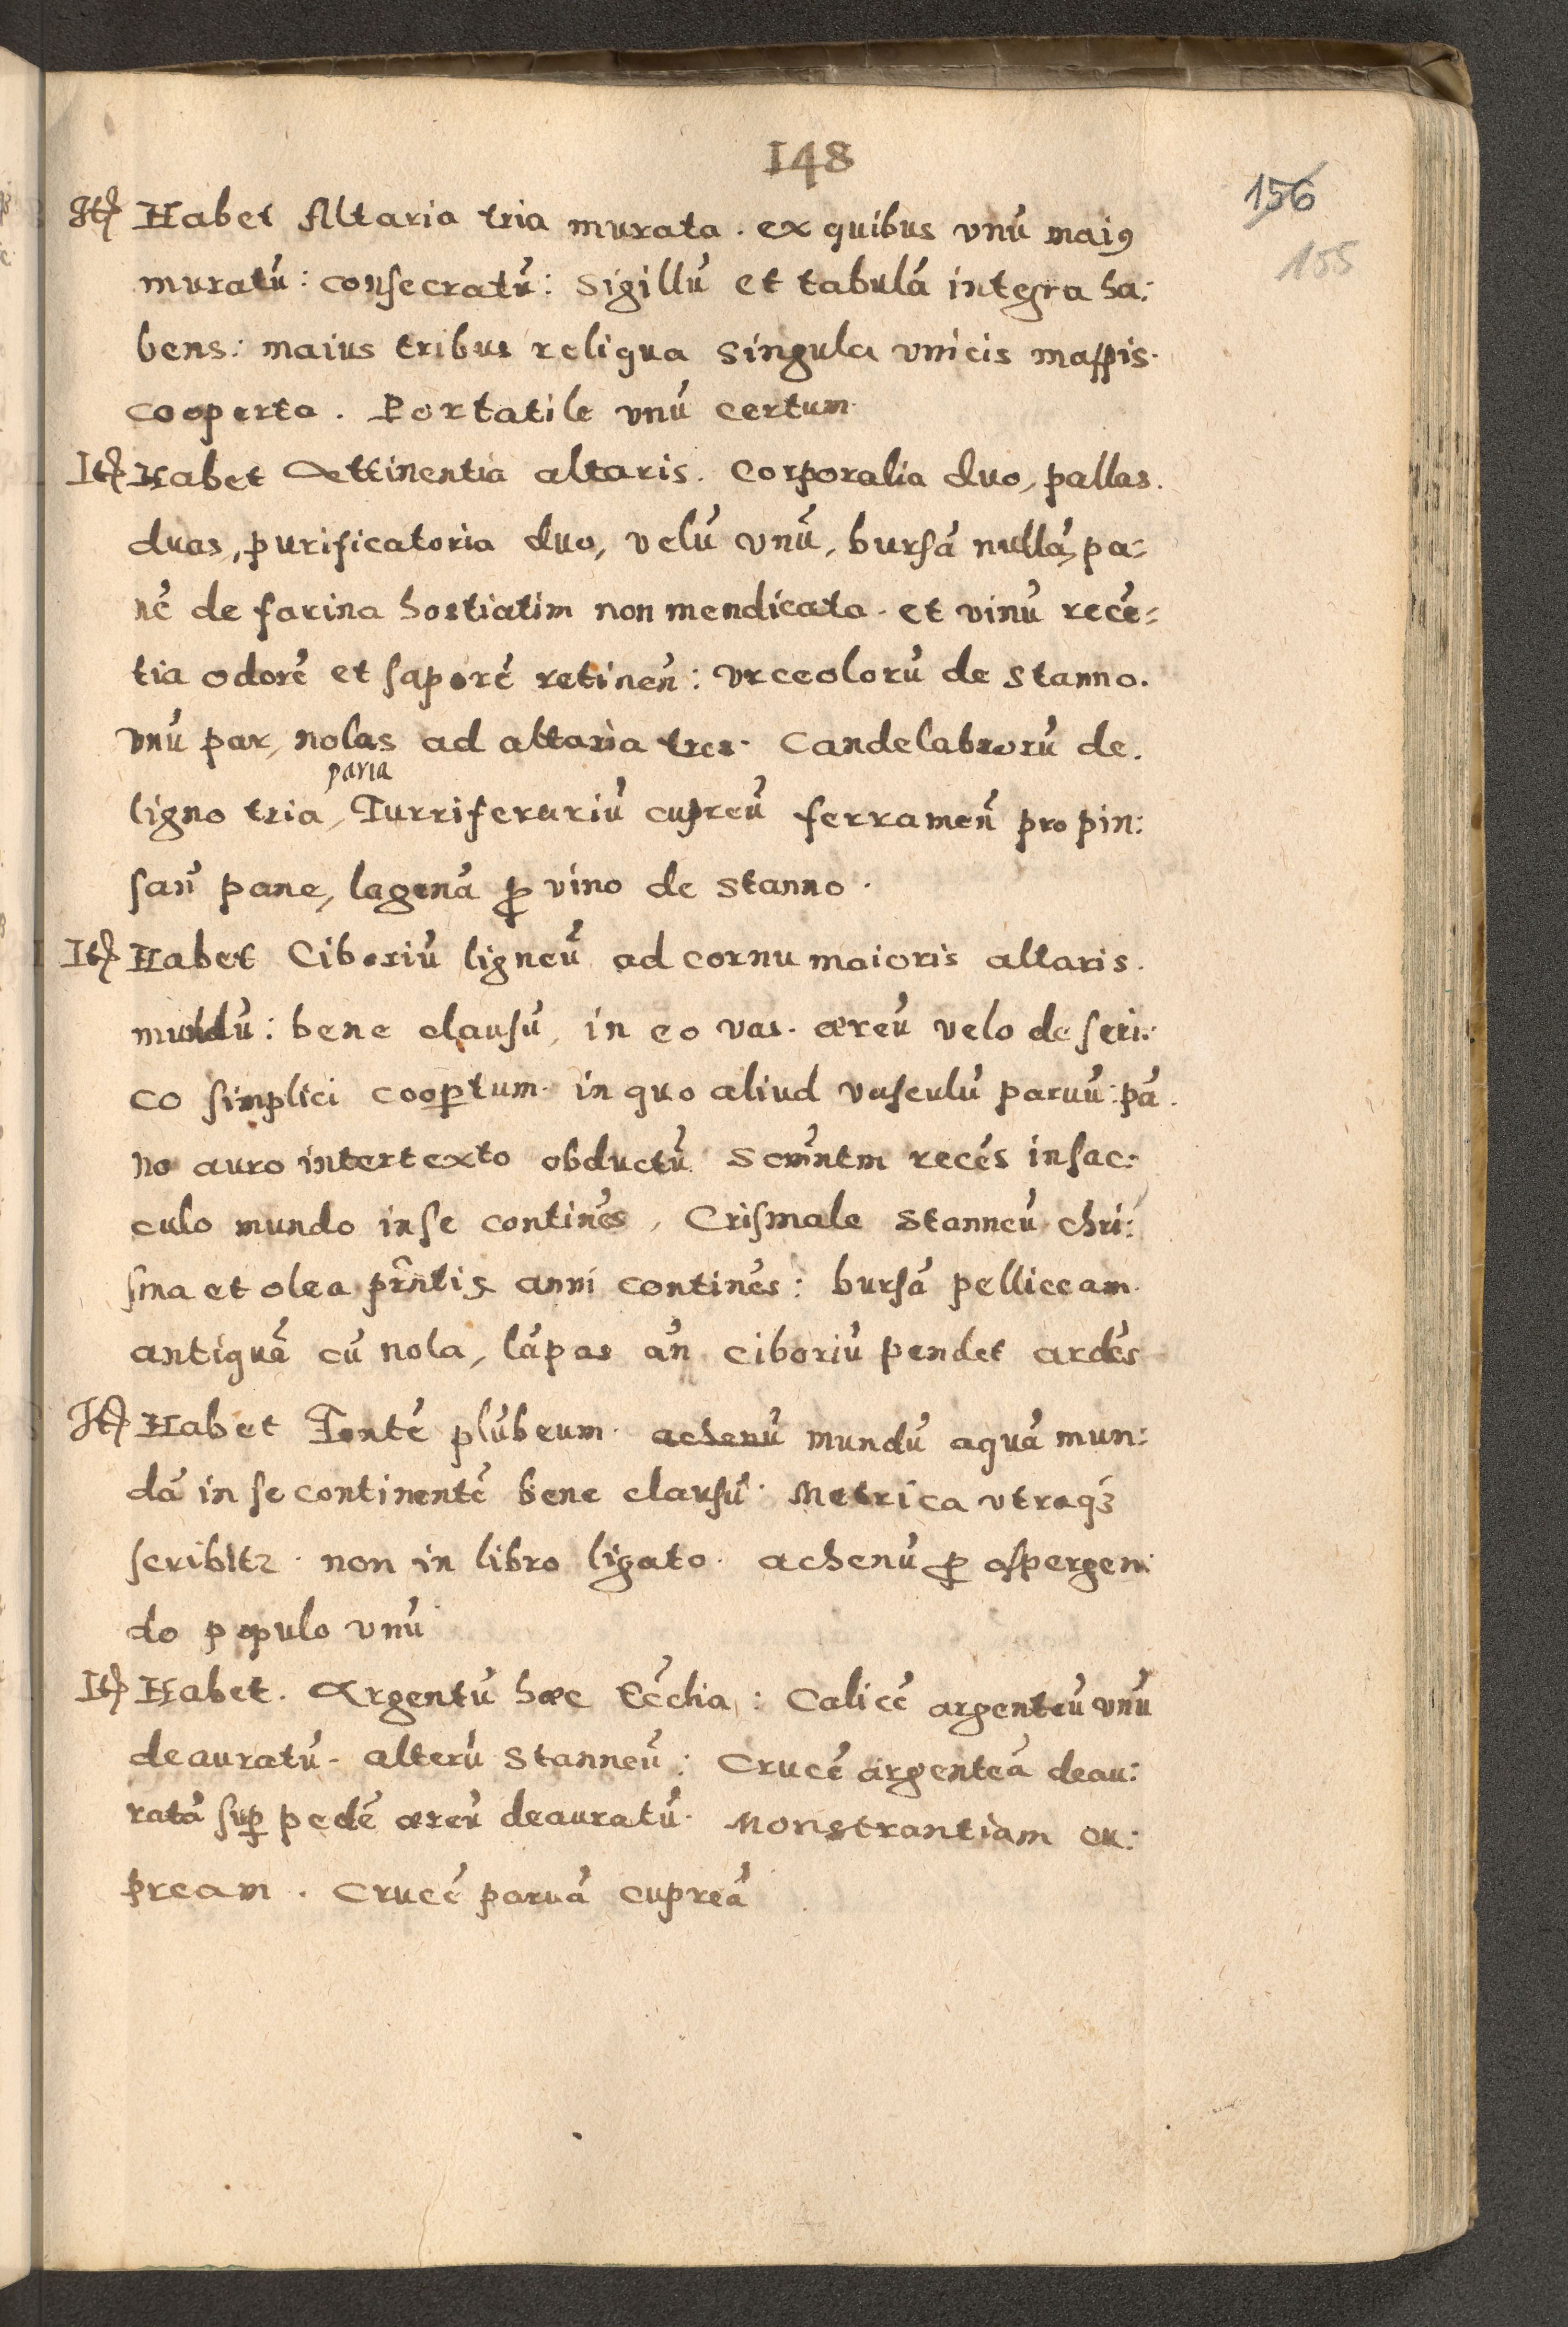 148
156
155
Itẽ Habet Altaria tria murata. ex quibus vnũ maiꝯ
muratũ: consecratũ: sigillũ et tabulã integra ha:
bens: maius tribus reliqua singula vnicis mappis.
cooperta. Portatile vnũ certum.
Itẽ Habet attinentia altaris. Corporalia duo, pallas.
duas, purificatoria duo, velũ vnũ, bursã nullã, pa:
nẽ de farina hostiatim non mendicata. et vinũ recẽ:
tia odorẽ et saporẽ retineñ: vrceolorũ de stanno.
vnũ par, nolas ad altaria tres. Candelabrorũ de.
ligno tria paria, Turriferariũ cupreũ ferrameñ pro pin:
sañ pane, lagenã ꝓ vino de stanno.
Itẽ Habet Ciboriũ ligneũ ad cornu maioris altaris.
mundũ: bene clausũ, in eo vas. æreũ velo de seri:
co simplici cooꝑtum. in quo aliud vasculũ paruũ: pã.
no auro intertexto obductũ Scrm̃ntm recẽs in sac:
culo mundo in se continẽs, Crismale stanneũ chri:
sma et olea pr̃ntis anni continẽs: bursã pelliceam.
antiquã cũ nola, lãpas añ ciboriũ pendet ardẽs
Itẽ Habet Fontẽ plũbeum. achenũ mundũ aquã mun:
dã in se continentẽ bene clausũ. Metrica vtraqꝫ
scribitꝛ. non in libro ligato. achenũ ꝓ aspergen:
do populo vnũ
Itẽ Habet. Argentũ hæc Ecc̃lia: Calicẽ argenteũ vnũ
deauratũ. alterũ stanneũ: Crucẽ argenteã deau:
ratã suꝑ pedẽ æreũ deauratũ. Monstrantiam cu:
pream. Crucẽ paruã cupreã